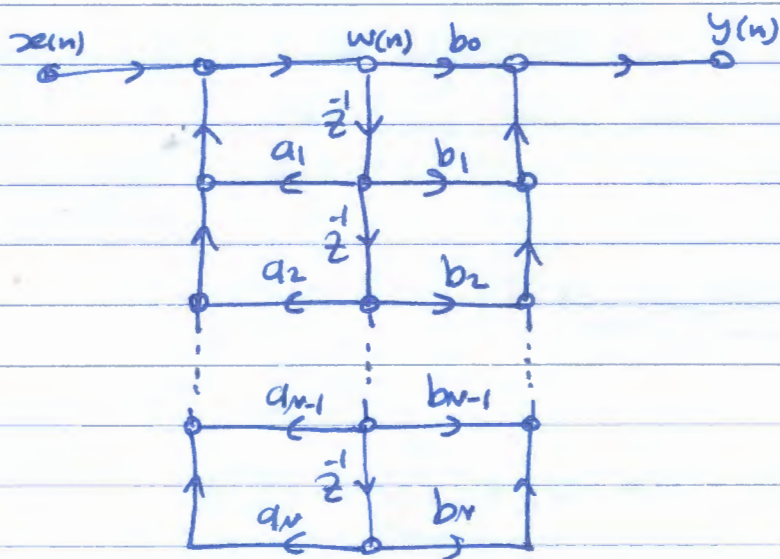 x(n) w(n) b₀ y(n)
z⁻¹
a₁ b₁
z⁻¹
a₂ b₂
a_N-1 b_N-1
z⁻¹
a_N b_N